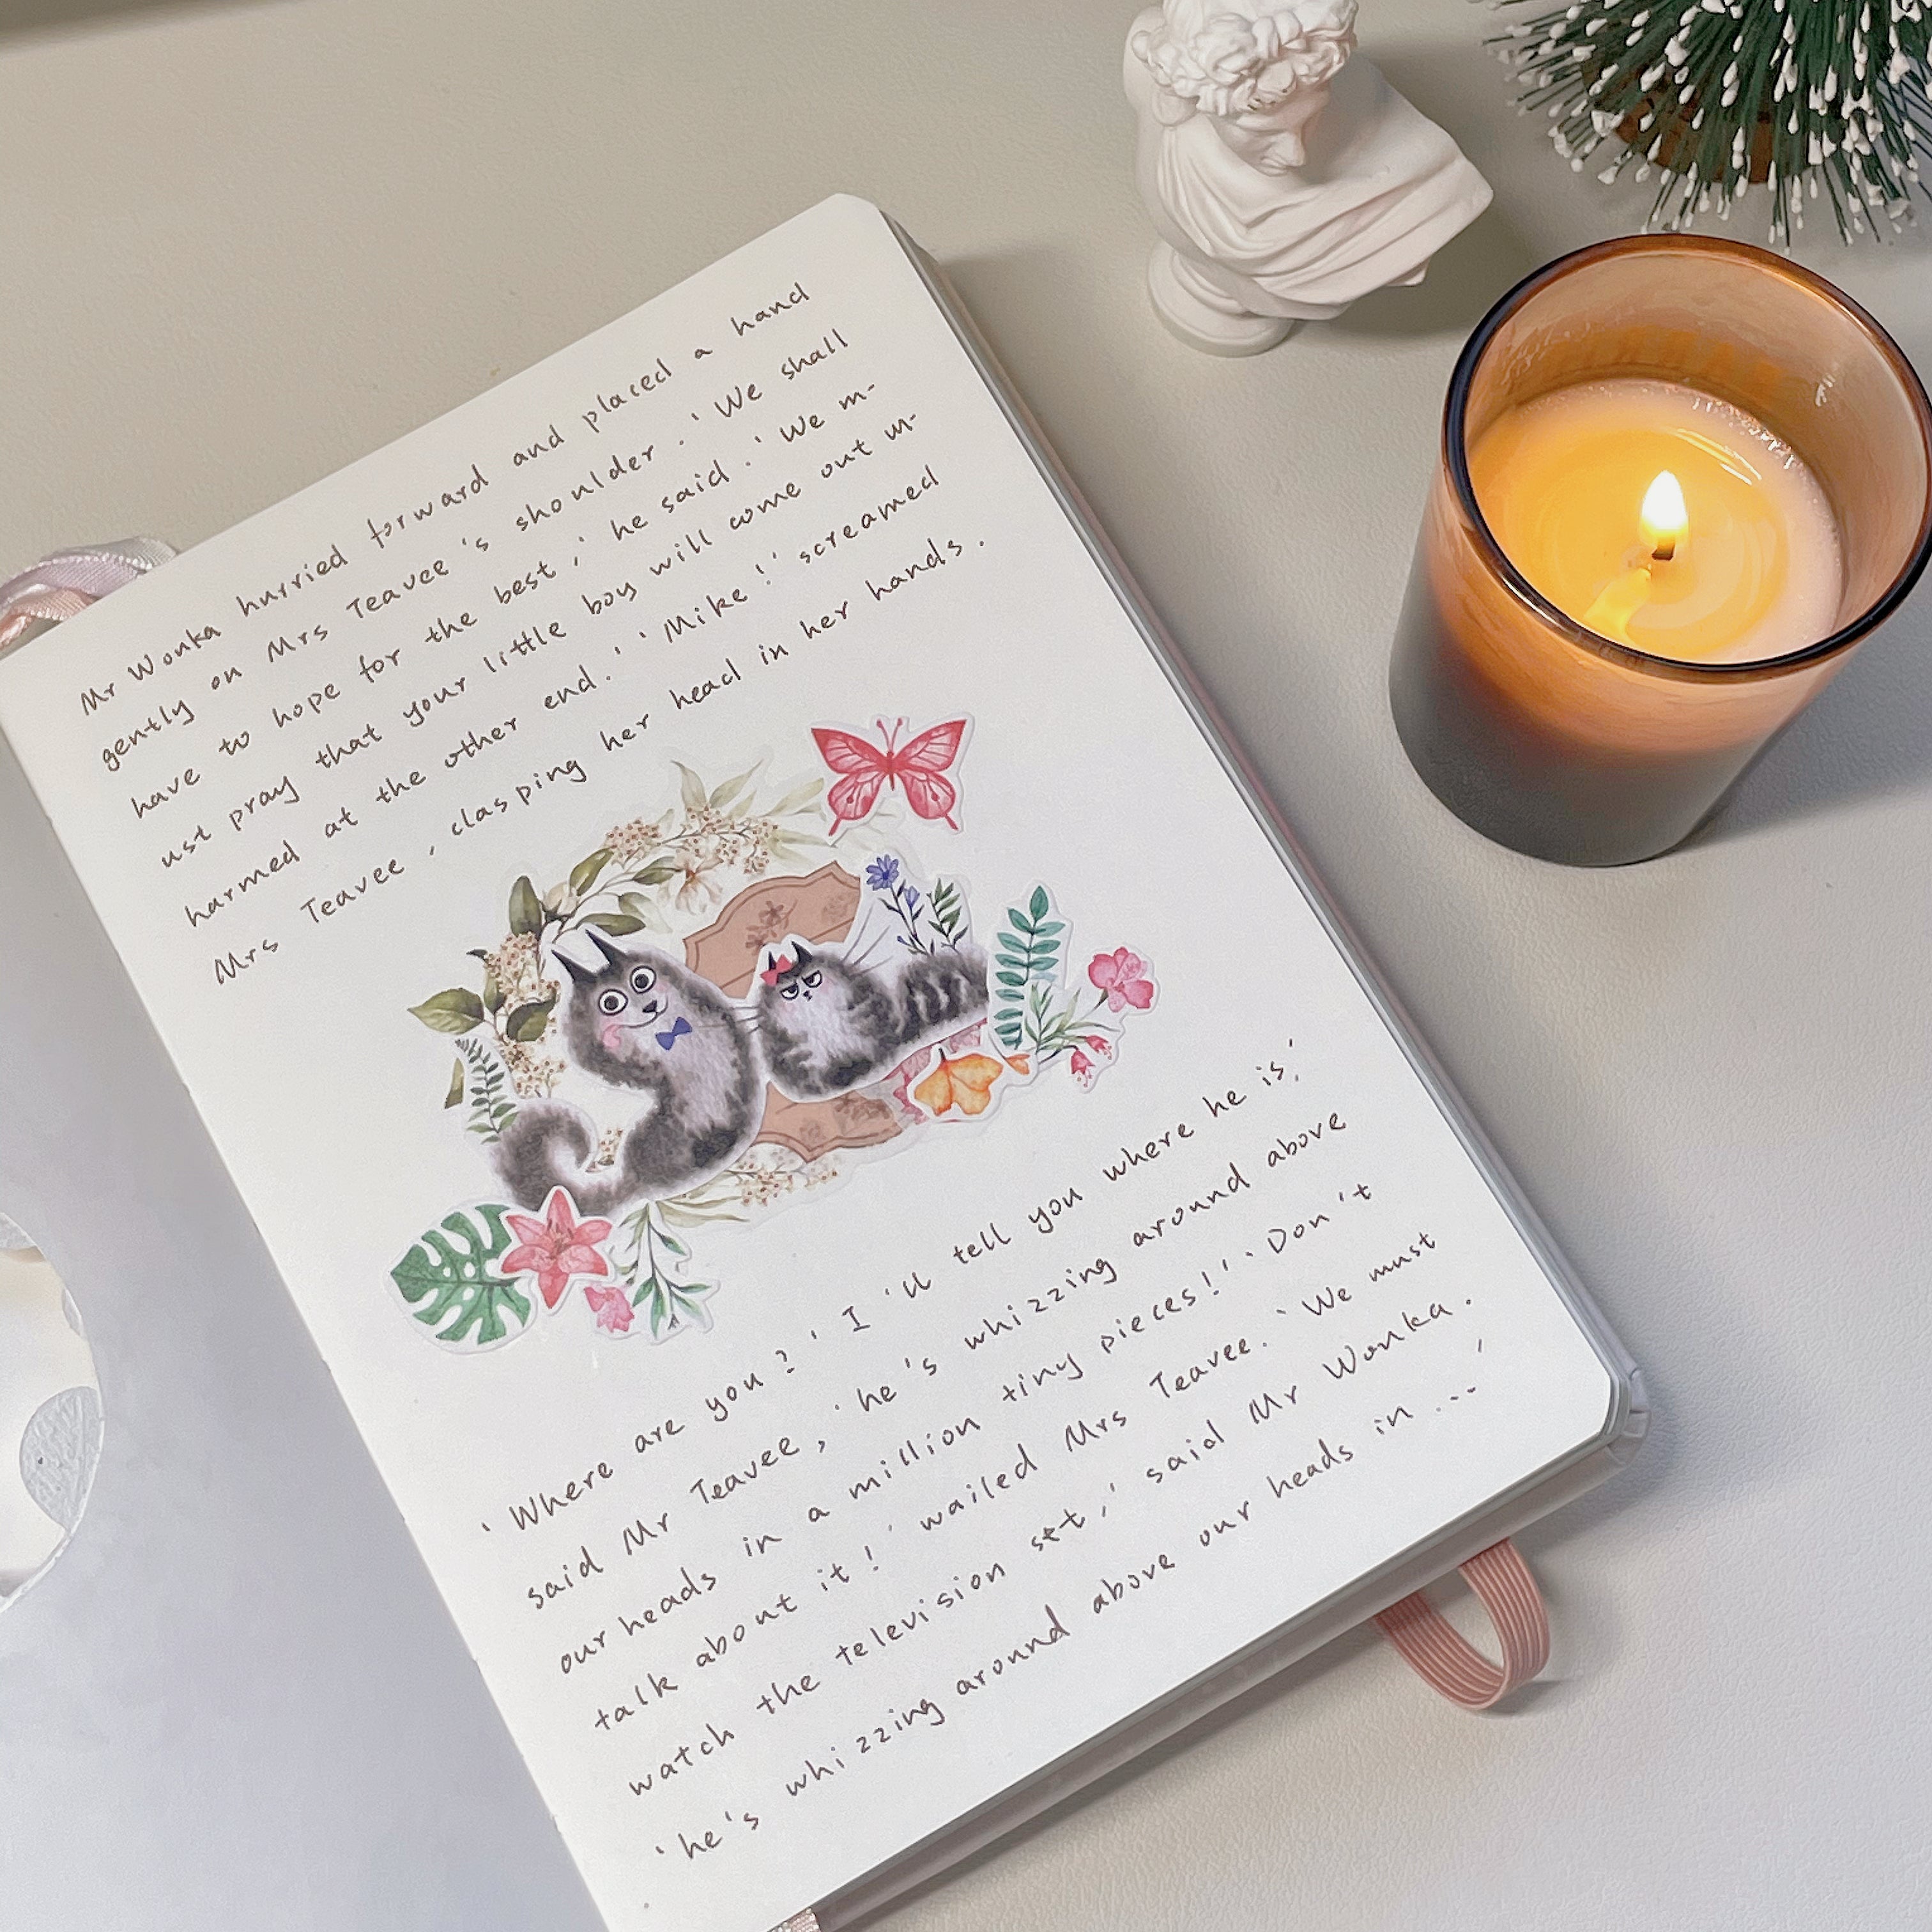 Mr Wonka hurried forward and placed a hand
gently on Mrs Teavee's shoulder. 'We shall
have to hope for the best,' he said. 'We m-
ust pray that your little boy will come out un-
harmed at the other end.' 'Mike!' screamed
Mrs Teavee, clasping her head in her hands.
'Where are you?' 'I'll tell you where he is,'
said Mr Teavee, 'he's whizzing around above
our heads in a million tiny pieces!' 'Don't
talk about it!' wailed Mrs Teavee. 'We must
watch the television set,' said Mr Wonka.
'he's whizzing around above our heads in ...'